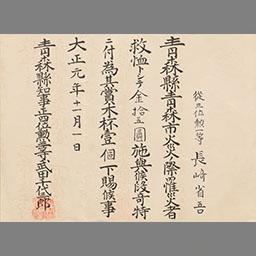 從三位勲一等 長﨑省吾
青森縣青森市火災ノ際罹災者
救恤トシテ金拾五圓施與候段奇特
ニ付為其賞木杯壹個下賜候事
大正元年十一月一日
青森縣知事正四位勲三等武田千代三郎